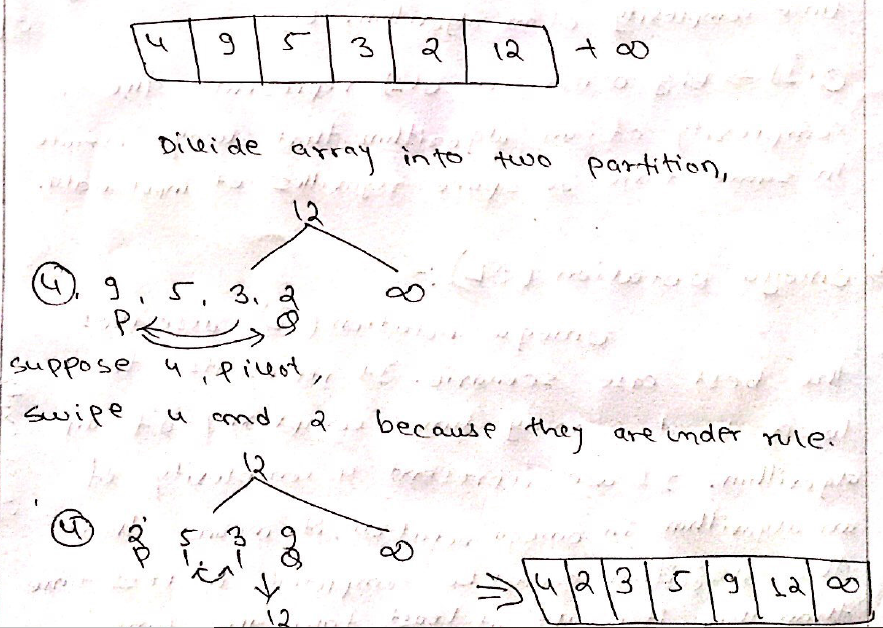 4 9 5 3 2 12 + ∞
Divide array into two partition,
12
4, 9, 5, 3, 2 ∞
P Q
suppose 4, pivot,
swipe 4 and 2 because they are under rule.
12
4 2 5 3 9 ∞
P Q
12
⇒ 4 2 3 5 9 12 ∞